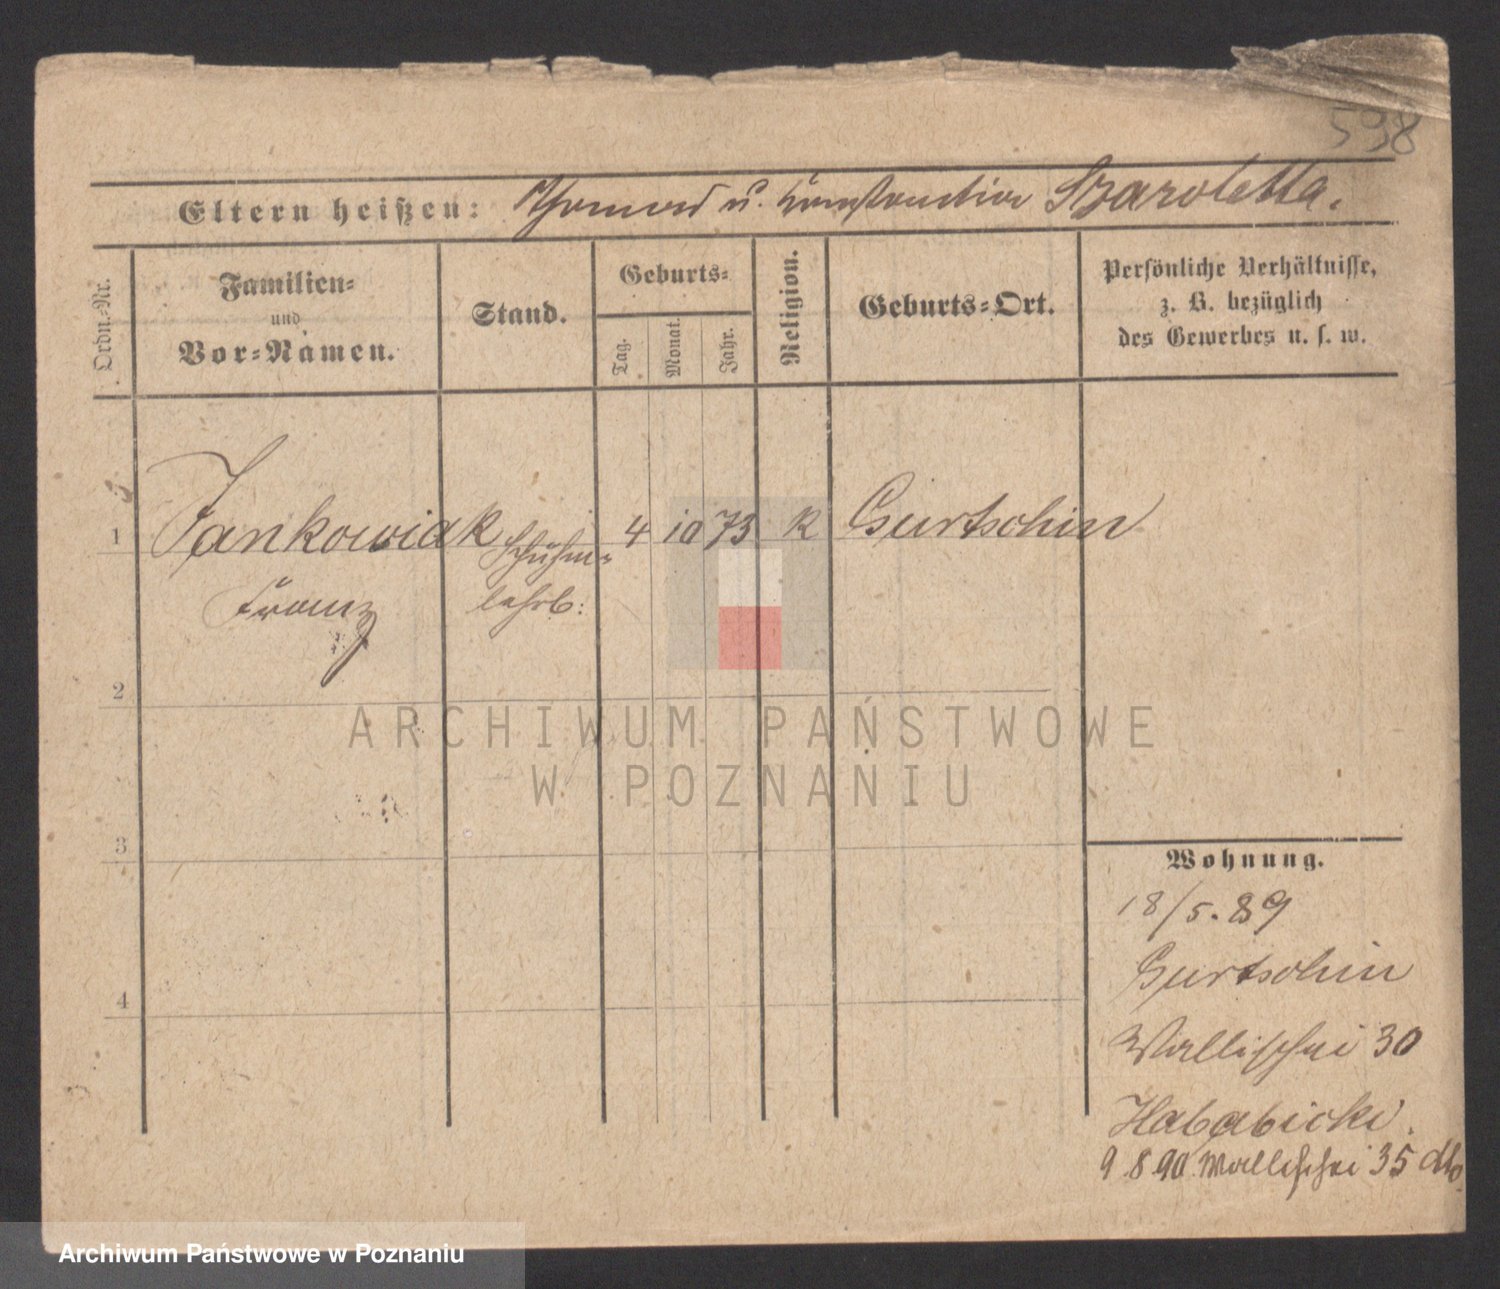 598
Eltern heißen: Thomas u. Konstantia Szaroletta.
Ordn.-Nr.
Familien-
und
Vor-Namen.
Stand.
Geburts-
Tag.
Monat.
Jahr.
Religion.
Geburts-Ort.
Persönliche Verhältnisse,
z. B. bezüglich
des Gewerbes u. s. w.
1
Jankowiak
Franz
Schuhm-
lehrb:
4 10 73 K Gurtschin
2
3
4
ARCHIWUM PAŃSTWOWE
W POZNANIU
Wohnung.
18/5.89
Gurtschin
Wallischei 30
Hababicki.
9.8.90. Wallischei 35 dto
Archiwum Państwowe w Poznaniu